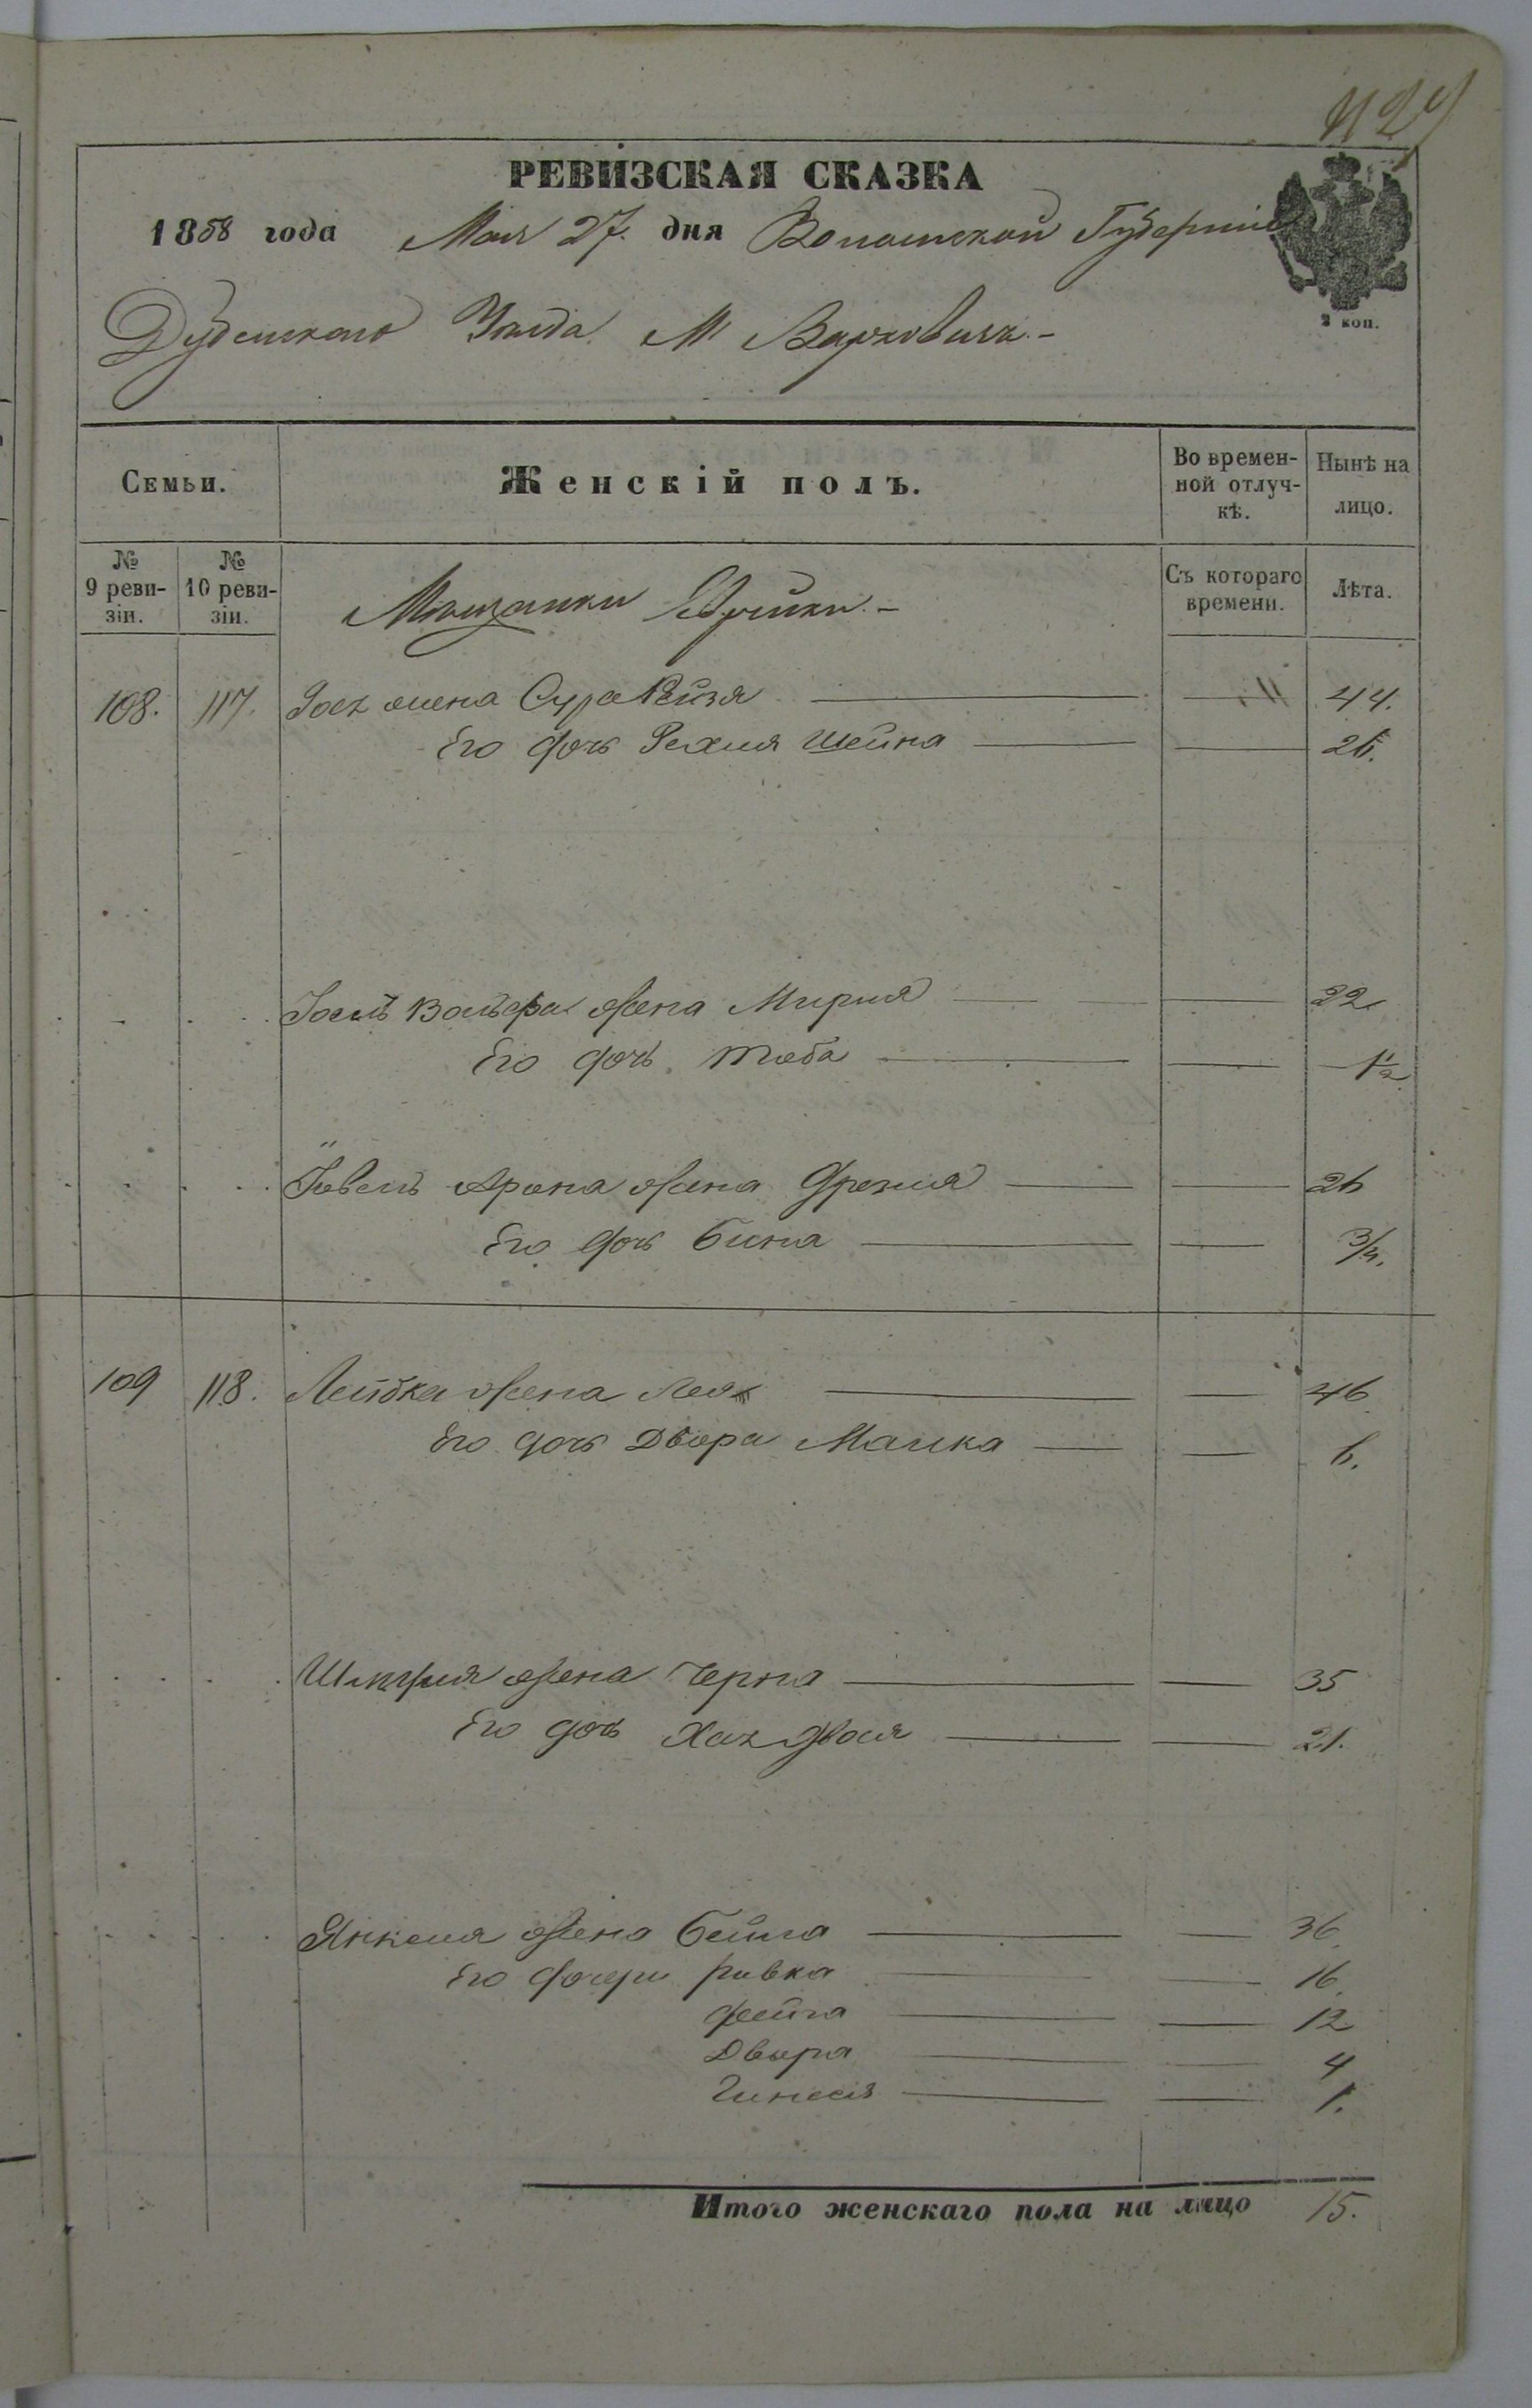 429
РЕВИЗСКАЯ СКАЗКА
1858 года Мая 27. дня Волынской Губерніи
2 коп.
Дубенскаго Уѣзда М Варковичъ.-
Семьи.
Женскій полъ.
Во времен-
ной отлуч-
кѣ.
Нынѣ на
лицо.
№
9 реви-
зіи.
№
10 реви-
зіи.
Мѣщанки Еврейки.-
Съ котораго
времени.
Лѣта.
108. 117. жена Сура Рейзя 44.
Его дочь Шейна 26.
Вольфа жена Миріля 22
Его дочь Тоба 1½
Арона жена 26
Его дочь Бина 3/4.
109 118. Лейбка жена Лея 46
Его дочь Двора Малка 6.
жена Черна 35
Его дочь 21.
Янкеля жена Бейла 36.
Его дочери Ривка 16.
Фейга 12
Двора 4
1.
Итого женскаго пола на лицо 15.